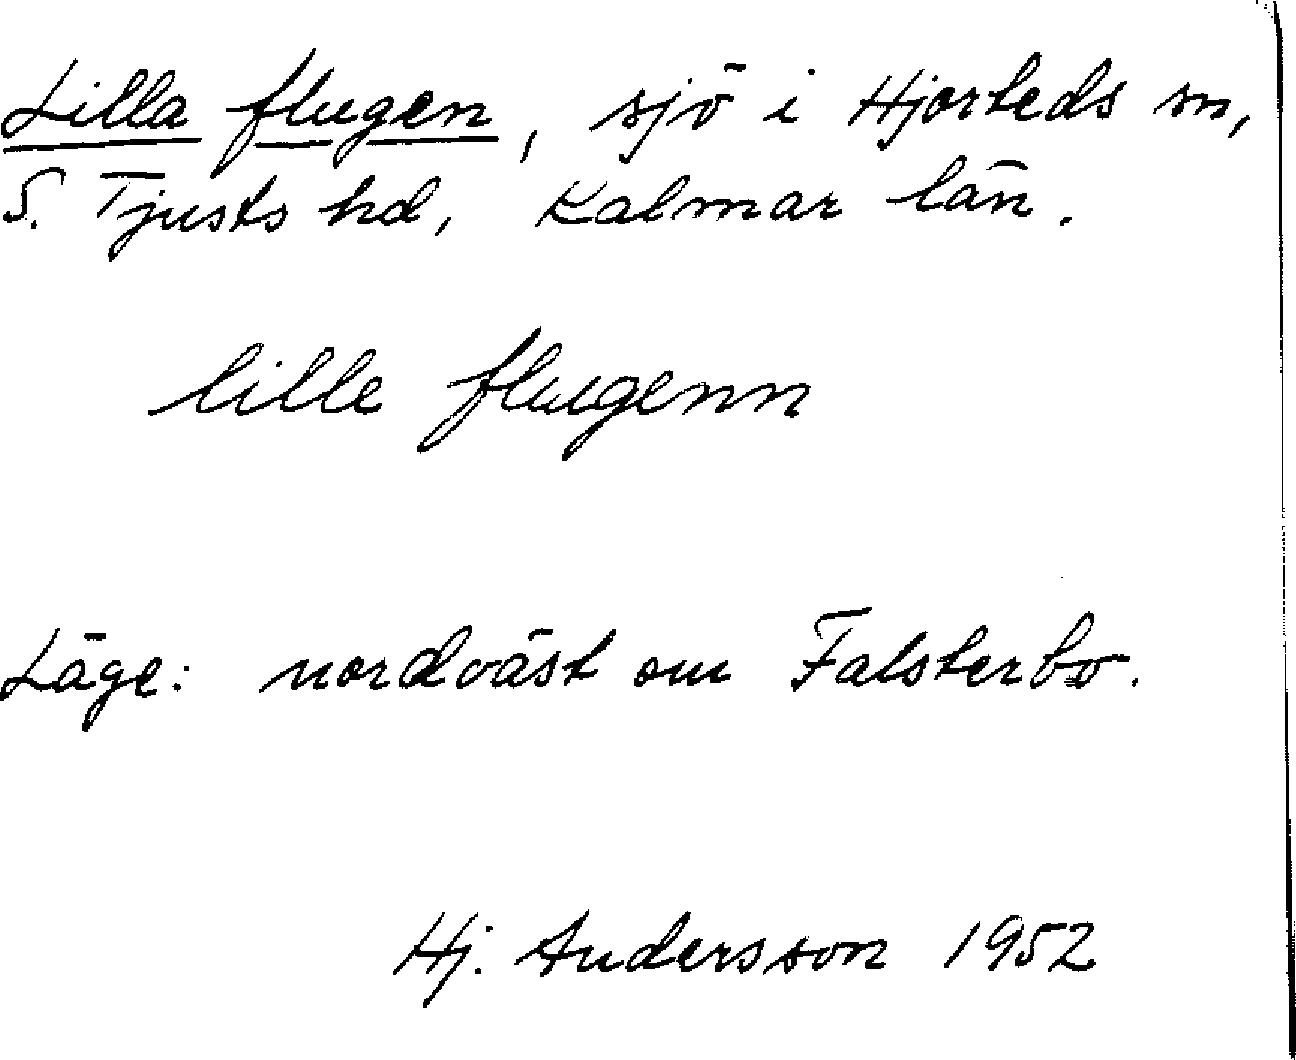 Lilla flugen, sjö i Hjorteds sn,
S. Tjusts hd, Kalmar län.
lille flugenn
Läge: nordväst om Falsterbo.
Hj. Andersson 1952